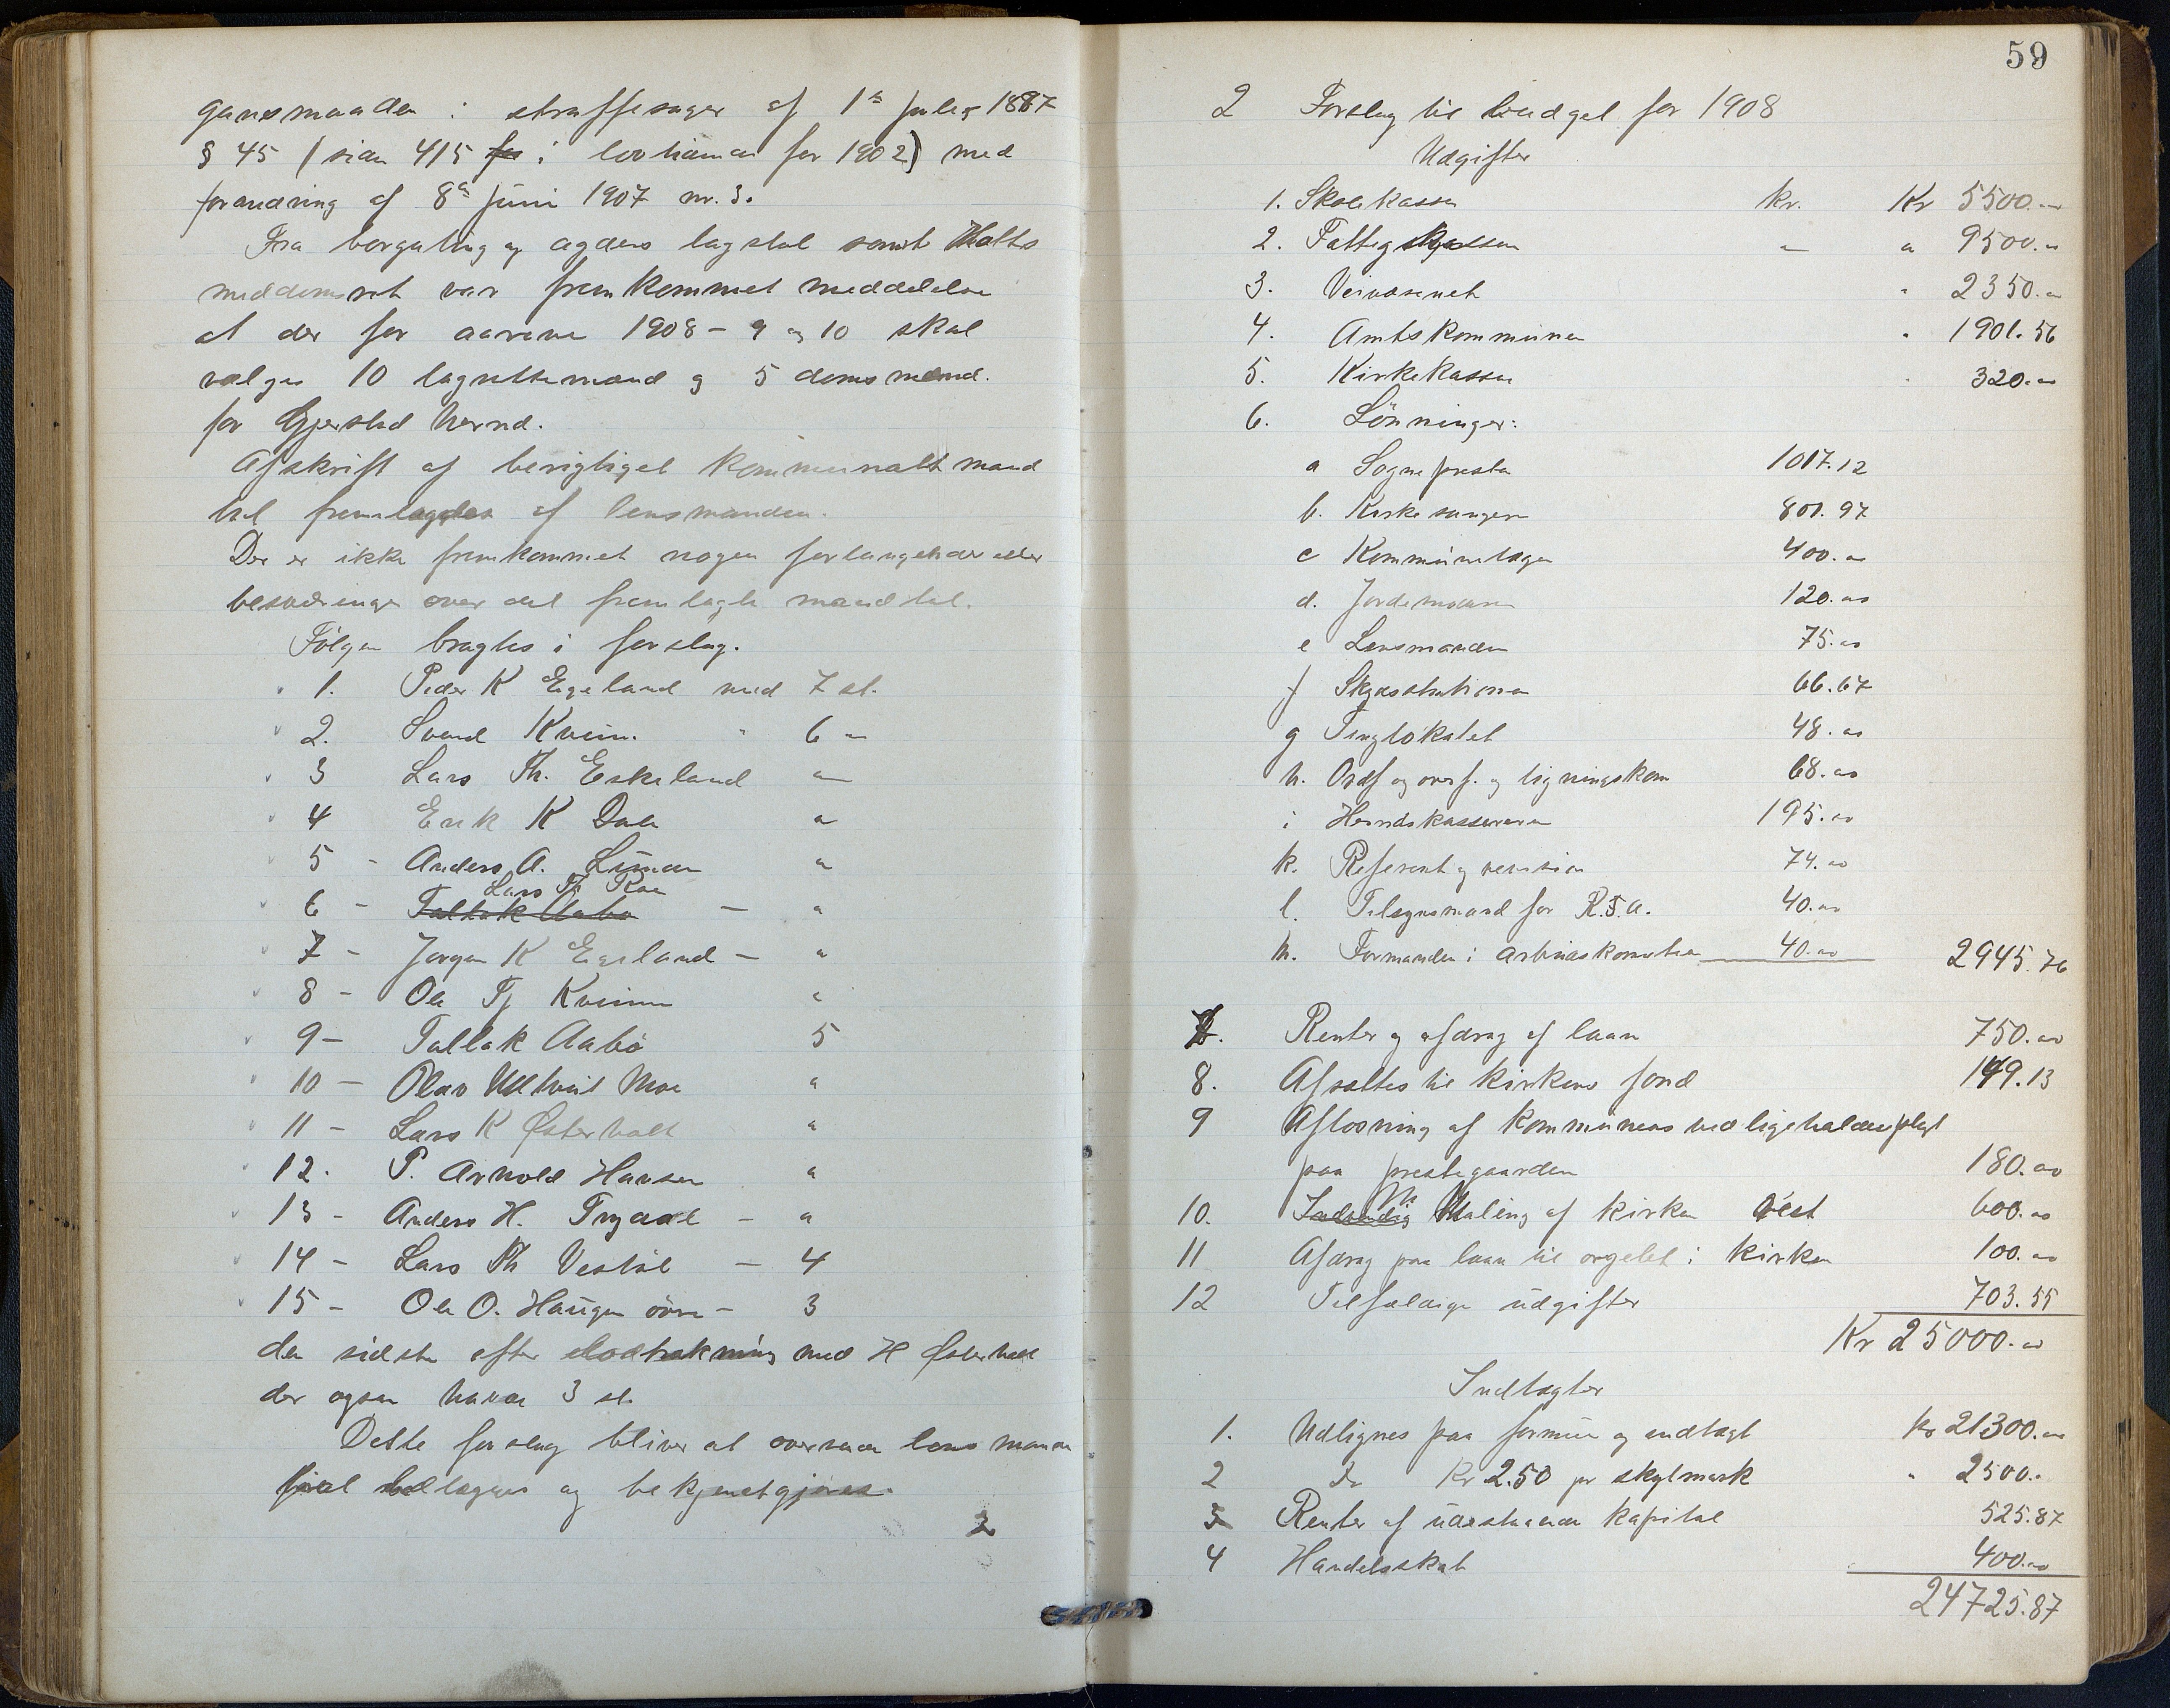 gansmaaden i straffesager af 1ste juli 1887
§ 45 (sian 415 i lovtiaman for 1902) med
forandring af 8de juni 1907 nr. 3.
Fra borgating og agders lagstol samt Holts
meddomsret var fremkommet meddelelse
at der for aarene 1908 - 9 og 10 skal
vælges 10 lagrettemænd og 5 domsmænd.
for Gjerstad herred.
Afskrift af berigtiget kommunalt mand
tal fremlagdes af lensmanden.
Der er ikke fremkommet nogen forlangender eller
besværinger over det fremlagte mandtal.
Følgen bragtes i forslag.
1. Peder K Egeland med 7 st.
2. Svend Kveim. " 6 "
3 Lars Th. Eskeland "
4 Erik K Dale "
5 - Anders A. Lunden "
Lars Th Roe
6 - Tallak Aabø - "
7 - Jørgen K Egeland - "
8 - Ole Tj Kveim "
9 - Tallak Aabø 5
10 - Olav Ulltveit Moe "
11 - Lars K Østerholt "
12. P. Arnold Hansen "
13 - Anders H. Trydal - "
14 - Lars Th Vestøl - 4
15 - Ole O. Haugen øvre - 3
den sidste efter lodtrækning med H Østerholt
der ogsaa havde 3 st.
Dette forslag bliver at oversende lensmanden
til udlæggelse og bekjendtgjøres.
2
59
2 Forslag til budget for 1908
Udgifter
1. Skolekassen kr. Kr 5500.00
2. Fattigkassen " " 9500.00
3. Veivæsenet " 2350.00
4. Amtskommunen " 1901.56
5. Kirkekassen " 320.00
6. Lønninger:
a Sognepresten 1017.12
b. Kirkesangeren 801.97
c Kommunelægen 400.00
d. Jordemoderen 120.00
e Lensmanden 75.00
f Skydsstationen 66.67
g Tinglokalet 48.00
h. Ordf og overf. og ligningskom 68.00
i Herredskassereren 195.00
k. Referent og revision 74.00
l. Tilsynsmand for R.F.A. 40.00
m. Formanden i arbeidskomiteen 40.00 2945.76
7. Renter og afdrag af laan 750.00
8. Afsættes til kirkens fond 149.13
9 Afløsning af kommunens vedligeholdespligt
paa prestegaarden 180.00
10. Indvendig Maling af kirken Vest 600.00
11 Afdrag paa laan til orgelet i kirken 100.00
12 Tilfældige udgifter 703.55
Kr 25000.00
Indtægter
1. Udlignes paa formue og indtægt kr 21300.00
2 Do Kr 2.50 pr skylmark " 2500.
3 Renter af udestaaende kapital 525.87
4 Handelsskat 400.00
24725.87